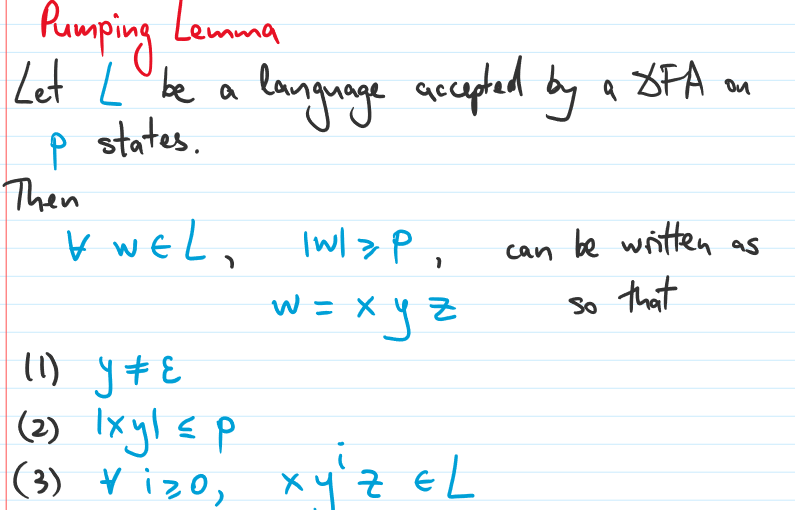 Pumping Lemma
Let L be a language accepted by a DFA on
p states.
Then
∀ w ∈ L, |w| ≥ p, can be written as
w = x y z so that
(1) y ≠ ε
(2) |xy| ≤ p
(3) ∀ i ≥ 0, x yⁱ z ∈ L